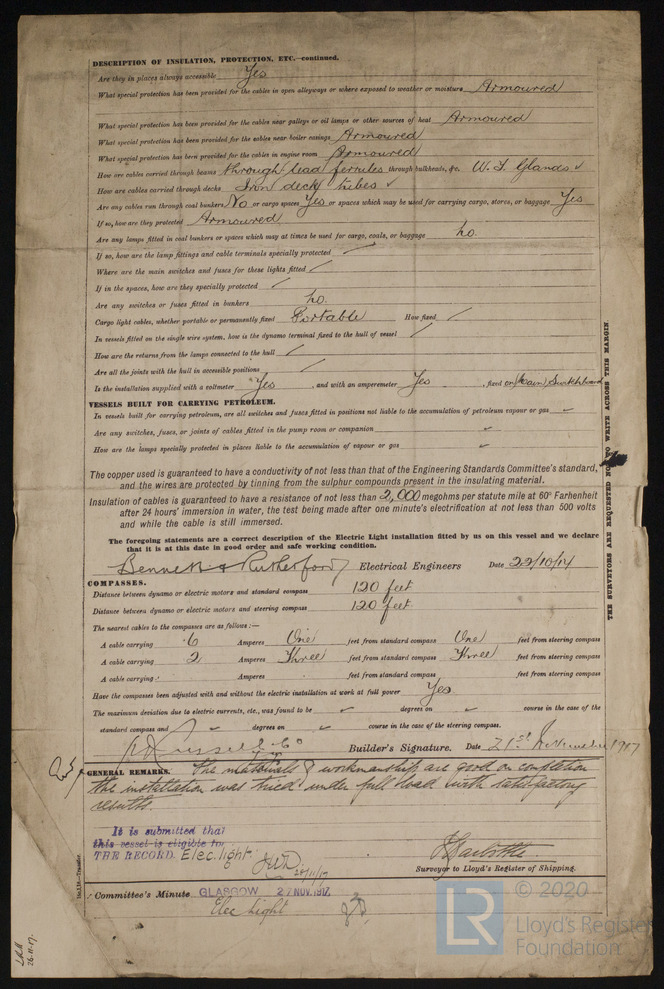 DESCRIPTION OF INSULATION, PROTECTION, ETC.—continued.
Are they in places always accessible Yes
What special protection has been provided for the cables in open alleyways or where exposed to weather or moisture Armoured
What special protection has been provided for the cables near galleys or oil lamps or other sources of heat Armoured
What special protection has been provided for the cables near boiler casings Armoured
What special protection has been provided for the cables in engine room Armoured
How are cables carried through beams through lead ferrules through bulkheads, &c. W. T. Glands ✓
How are cables carried through decks Iron deck tubes ✓
Are any cables run through coal bunkers No or cargo spaces Yes or spaces which may be used for carrying cargo, stores, or baggage Yes
If so, how are they protected Armoured
Are any lamps fitted in coal bunkers or spaces which may at times be used for cargo, coals, or baggage No.
If so, how are the lamp fittings and cable terminals specially protected
Where are the main switches and fuses for these lights fitted
If in the spaces, how are they specially protected
Are any switches or fuses fitted in bunkers No.
Cargo light cables, whether portable or permanently fixed Portable How fixed
In vessels fitted on the single wire system, how is the dynamo terminal fixed to the hull of vessel
How are the returns from the lamps connected to the hull
Are all the joints with the hull in accessible positions
Is the installation supplied with a voltmeter Yes, and with an amperemeter Yes, fixed on Main Switchboard
VESSELS BUILT FOR CARRYING PETROLEUM.
In vessels built for carrying petroleum, are all switches and fuses fitted in positions not liable to the accumulation of petroleum vapour or gas
Are any switches, fuses, or joints of cables fitted in the pump room or companion
How are the lamps specially protected in places liable to the accumulation of vapour or gas
The copper used is guaranteed to have a conductivity of not less than that of the Engineering Standards Committee's standard,
and the wires are protected by tinning from the sulphur compounds present in the insulating material.
Insulation of cables is guaranteed to have a resistance of not less than 2,000 megohms per statute mile at 60° Farhenheit
after 24 hours' immersion in water, the test being made after one minute's electrification at not less than 500 volts
and while the cable is still immersed.
The foregoing statements are a correct description of the Electric Light installation fitted by us on this vessel and we declare
that it is at this date in good order and safe working condition.
Bennett & Rutherford Electrical Engineers Date 22/10/17
COMPASSES.
Distance between dynamo or electric motors and standard compass 120 feet
Distance between dynamo or electric motors and steering compass 120 feet
The nearest cables to the compasses are as follows:—
A cable carrying 6 Amperes One feet from standard compass One feet from steering compass
A cable carrying 2 Amperes Three feet from standard compass Three feet from steering compass
A cable carrying Amperes feet from standard compass feet from steering compass
Have the compasses been adjusted with and without the electric installation at work at full power Yes
The maximum deviation due to electric currents, etc., was found to be degrees on course in the case of the
standard compass and degrees on course in the case of the steering compass.
Russell & Co Builder's Signature. Date 21st November 1917
GENERAL REMARKS. The materials & workmanship are good on completion
the installation was tried under full load with satisfactory
results.
It is submitted that
this vessel is eligible for
THE RECORD. Elec. light.
26/11/17
Surveyor to Lloyd's Register of Shipping.
Committee's Minute GLASGOW 27 NOV. 1917
Elec Light
THE SURVEYORS ARE REQUESTED NOT TO WRITE ACROSS THIS MARGIN
26-11-17.
© 2020
LR
Lloyd's Register
Foundation